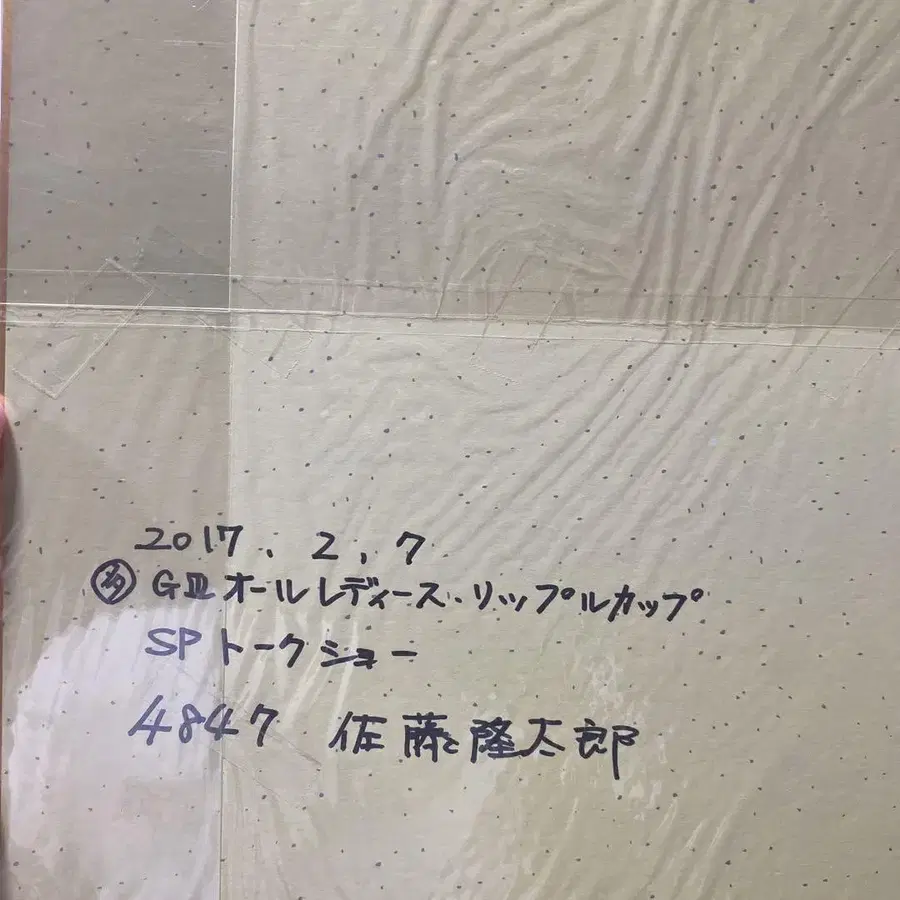 2017.2.7
㊂ GⅢオールレディース・リップルカップ
SPトークショー
4847 佐藤隆太郎